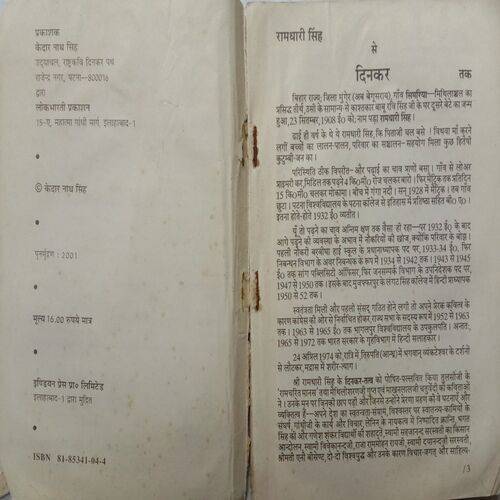 प्रकाशक
केदार नाथ सिंह
उदयाचल, राष्ट्रकवि दिनकर पथ
राजेन्द्र नगर, पटना-800016
द्वारा
लोकभारती प्रकाशन
15-ए, महात्मा गांधी मार्ग, इलाहाबाद-1
© केदार नाथ सिंह
पुनर्मुद्रण : 2001
मूल्य 16.00 रुपये मात्र
इण्डियन प्रेस प्रा० लिमिटेड
इलाहाबाद-1 द्वारा मुद्रित
ISBN 81-85341-04-4
रामधारी सिंह
से
दिनकर तक
बिहार राज्य, जिला मुंगेर (अब बेगूसराय), गाँव सिमरिया—मिथिलाञ्चल का
प्रसिद्ध तीर्थ, उसी के सामान्य-से काश्तकार बाबू रवि सिंह जी के घर दूसरे बेटे का जन्म
हुआ, 23 सितम्बर, 1908 ई० को; नाम पड़ा रामधारी सिंह।
ढाई ही वर्ष के थे ये रामधारी सिंह, कि पिताजी चल बसे ! विधवा माँ करने
लगीं बच्चों का लालन-पालन, परिवार का सञ्चालन—सहयोग मिला कुछ हितैषी
कुटुम्बी-जन का।
परिस्थिति ठीक विपरीत—और पढ़ाई का चाव प्राणों बसा। गाँव से लोअर
प्राइमरी कर, मिडिल तक पढ़ने 4 कि०मी० रोज चलकर बारो। फिर मैट्रिक तक प्रतिदिन
15 कि०मी० चलकर मोकामा। बीच में गंगा नदी। सन् 1928 में मैट्रिक। तब गाँव
छूटा। पटना विश्वविद्यालय के पटना कॉलेज से इतिहास में प्रतिष्ठा सहित बी० ए०।
इतना होते-होते 1932 ई० व्यतीत।
यूँ तो पढ़ने का चाव अन्तिम क्षण तक वैसा ही रहा—पर 1932 ई० के बाद
आगे पढ़ने की व्यवस्था के अभाव में नौकरियों की खोज, क्योंकि परिवार के बोझ।
पहली नौकरी बरबीघा हाई स्कूल के प्रधानाध्यापक पद पर, 1933-34 ई०. फिर
निबन्धन विभाग के अवर निबन्धक के रूप में 1934 से 1942 तक। 1943 से 1945
ई० तक सांग पब्लिसिटी ऑफिसर, फिर जनसम्पर्क विभाग के उपनिदेशक पद पर,
1947 से 1950 तक। इसके बाद मुजफ्फरपुर के लंगट सिंह कॉलेज में हिन्दी प्राध्यापक
1950 से 52 तक।
स्वतंत्रता मिली और पहली संसद् गठित होने लगी तो अपने प्रेरक कवित्व के
कारण कांग्रेस की ओर से निर्वाचित होकर, राज्य सभा के सदस्य रूप में 1952 से 1963
तक। 1963 से 1965 ई० तक भागलपुर विश्वविद्यालय के उपकुलपति। अन्ततः,
1965 से 1972 तक भारत सरकार के गृहविभाग में हिन्दी सलाहकार।
24 अप्रैल 1974 को, रात्रि में, तिरुपति (आन्ध्र) में भगवान् व्यंकटेश्वर के दर्शनों
से लौटकर, मद्रास में शरीर-त्याग।
श्री रामधारी सिंह के दिनकर-तत्व को पोषित-पल्लवित किया तुलसीजी के
'रामचरित मानस' तथा मैथिलीशरणजी गुप्त एवं माखनलालजी चतुर्वेदी की कविताओं
ने। उनके मन पर जिनकी छाप पड़ी और जिनसे उन्होंने प्रेरणा ग्रहण की वे घटनाएँ और
व्यक्तित्व हैं—अपने देश का स्वतन्त्रता-संग्राम, विश्वस्तर पर स्वातन्त्र्य-कामियों के
संघर्ष, गांधीजी के कार्य और विचार, लेनिन के नायकत्व में निष्पादित क्रान्ति, भगत
सिंह की और गणेश शंकर विद्यार्थी की शहादतें, स्वामी सहजानन्द सरस्वती का किसान
आन्दोलन, स्वामी विवेकानन्दजी, राजा राममोहन रायजी, स्वामी दयानन्दजी सरस्वती,
श्रीमती एनी बीसेण्ट, दो-दो विश्वयुद्ध और उनके कारण विचार-जगत् और साहित्य-
/3